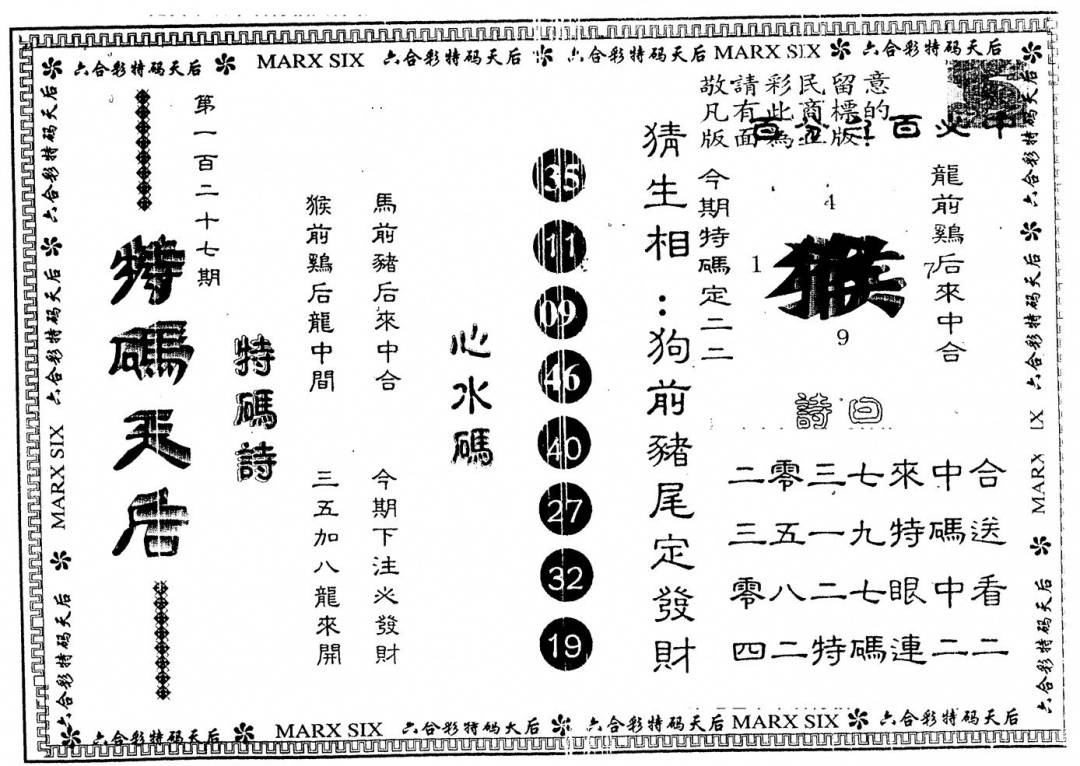 六合彩特码天后 MARX SIX 六合彩特码天后 六合彩特码天后 MARX SIX 六合彩特码天后
敬請彩民留意
凡有此商標的
版面為正版
龍前鷄后來中合
4
1
猴
7
9
今期特碼定二二
猜生相:狗前豬尾定發財
詩曰
二零三七來中合
三五一九特碼送
零八二七眼中看
四二特碼連二二
35
11
09
46
40
27
32
19
心水碼
馬前豬后來中合
今期下注必發財
猴前鷄后龍中間
三五加八龍來開
特碼詩
第一百二十七期
特碼天后
六合彩特码天后 六合彩特码天后 MARX SIX 六合彩特码天后
六合彩特码天后 六合彩特码天后 MARX 六合彩特码天后
六合彩特码天后 MARX SIX 六合彩特码天后 六合彩特码天后 MARX SIX 六合彩特码天后